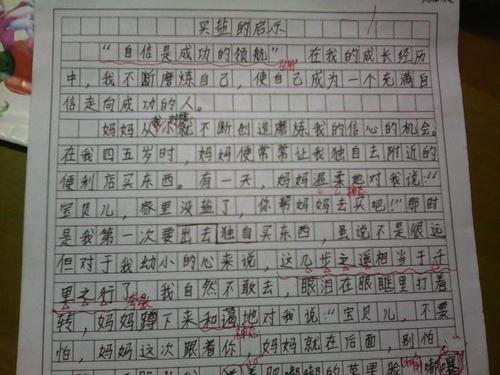 买盐的启示
“自信是成功的领航”，在我的成长经历
中，我不断磨炼自己，使自己成为一个充满自
信走向成功的人。
妈妈从小就不断创造磨炼我的信心的机会。
在我四五岁时，妈妈便常常让我独自去附近的
便利店买东西。有一天，妈妈温柔地对我说：“
宝贝儿，家里没盐了，你帮妈妈去买吧！”那时
是我第一次要出去独自买东西，虽说不是很远
但对于我幼小的心来说，这几步之遥相当于千
里之行了。我自然不敢去，眼泪在眼眶里打着
转，妈妈蹲下来和蔼地对我说：“宝贝儿，不要
怕，妈妈这次跟着你，妈妈就在后面，别怕